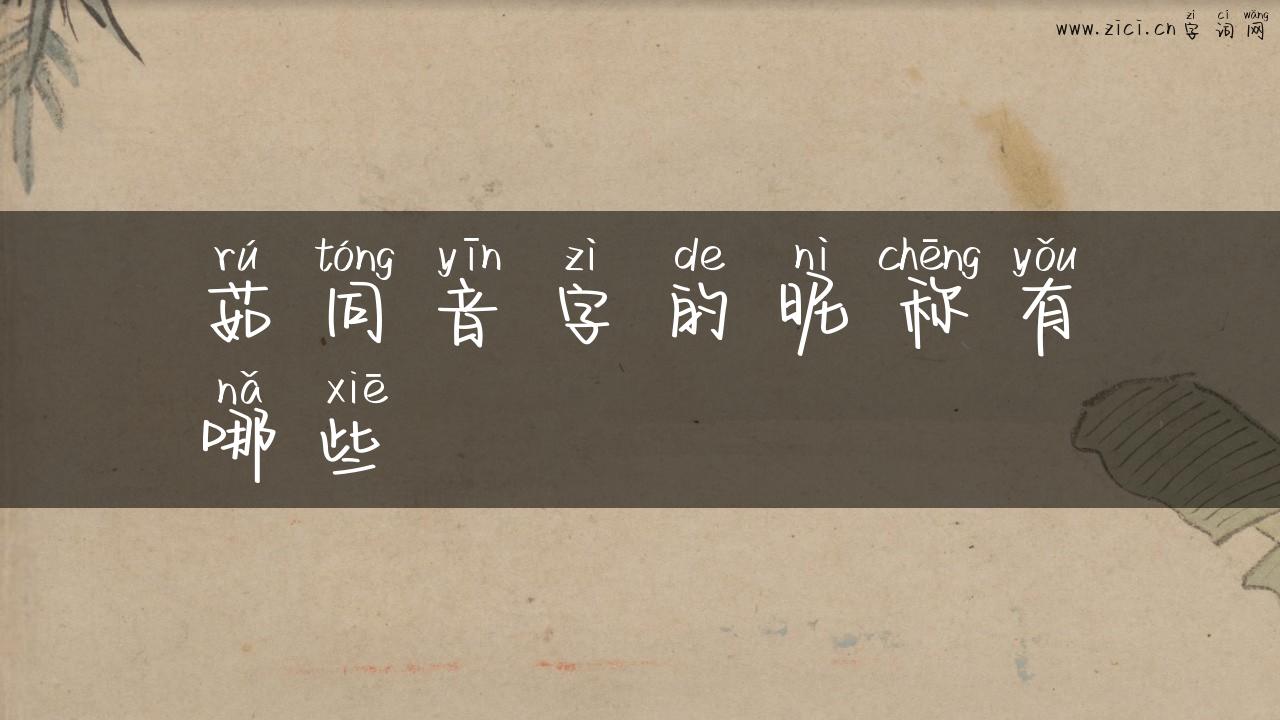 zì cí wǎng
www.zici.cn 字 词 网
rú tóng yīn zì de nì chēng yǒu
茹 同 音 字 的 昵 称 有
nǎ xiē
哪 些